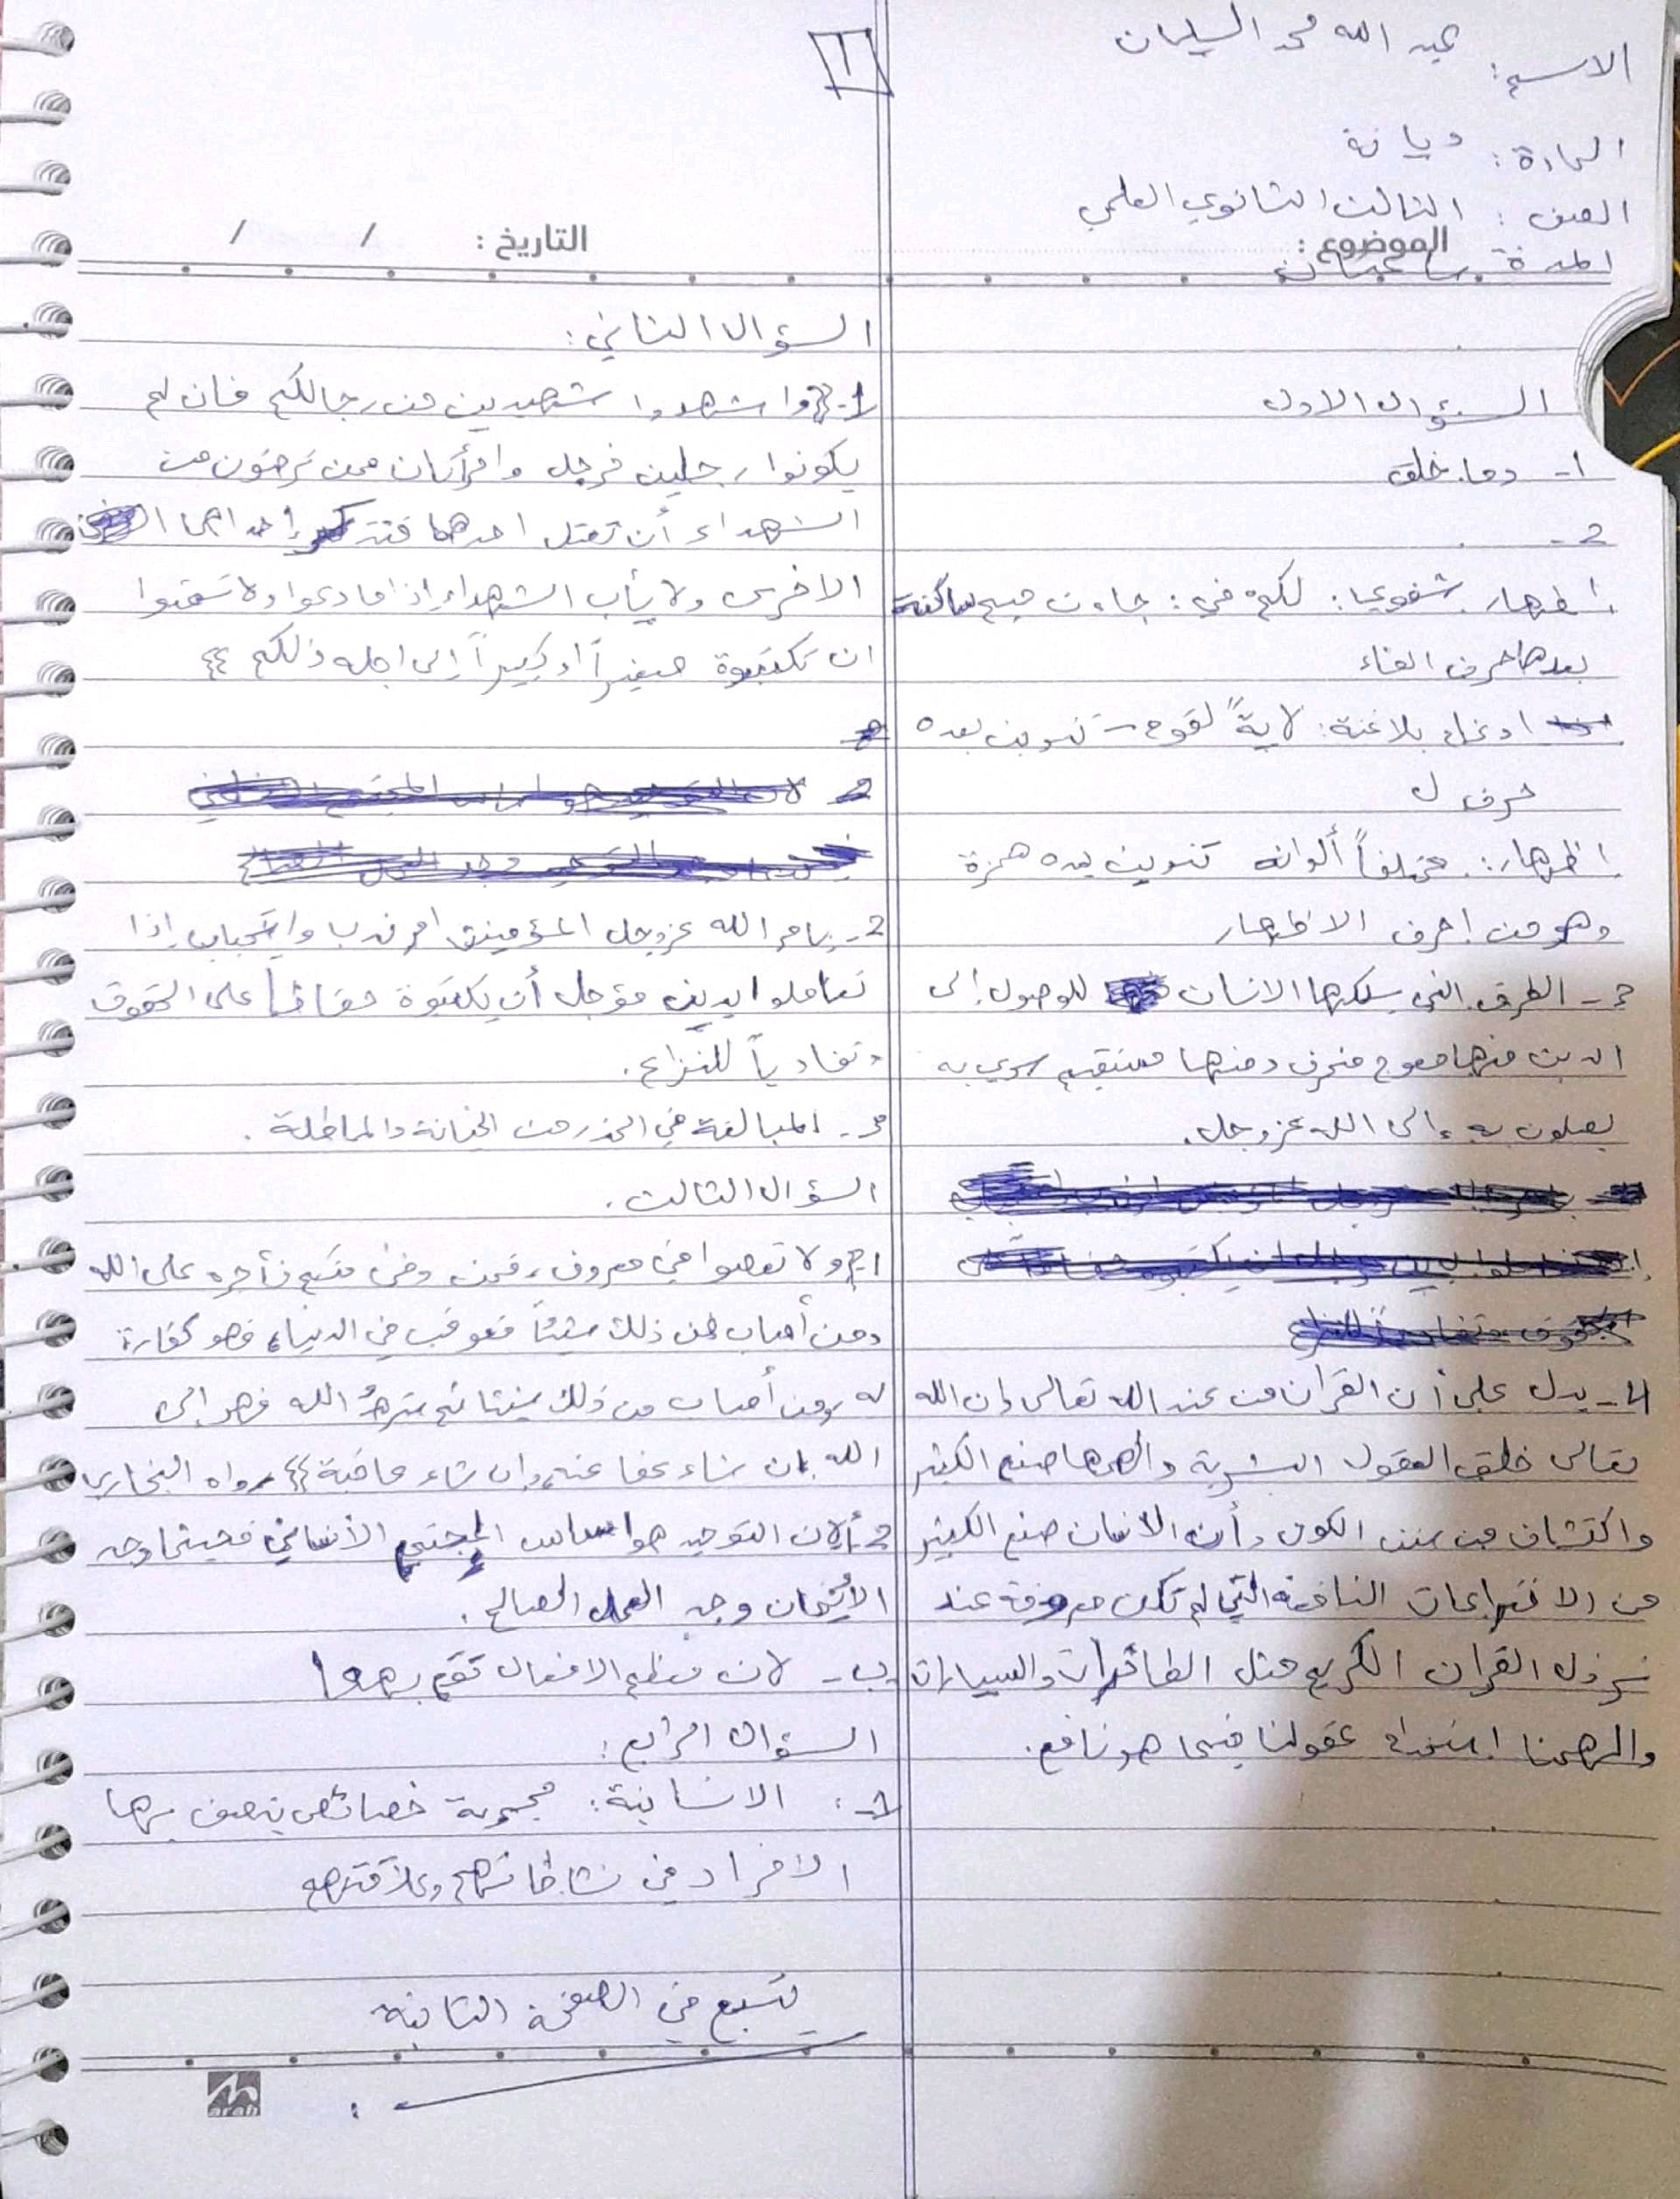 الاسم: عبد الله محمد السليمان
1
المادة: ديانة
الصف: الثالث الثانوي العلمي
الموضوع:
التاريخ: / /
المدة ساعتان
السؤال الاول
1- وما خلق
2-
اظهار شفوي: لكم في: جاءت ميم ساكنة
بعدها حرف الفاء
ادغام بلا غنة: لايةً لقوم - تنوين بعده
حرف ل
اظهار: مختلفاً ألوانه تنوين بعده همزة
وهو من احرف الاظهار
3- الطرق التي يسلكها الانسان للوصول إلى
الدين منها معوج منحرف ومنها مستقيم سوي به
يصلون به إلى الله عزوجل.
4- يدل على أن القرآن من عند الله تعالى وان الله
تعالى خلق العقول البشرية وألهمها صنع الكثير
واكتشاف من سنن الكون وأن الانسان صنع الكثير
من الاختراعات النافعة التي لم تكن معروفة عند
نزول القران الكريم مثل الطائرات والسيارات
والهمنا استخدام عقولنا فيما هو نافع.
السؤال الثاني:
1- واشهدوا شهيدين من رجالكم فان لم
يكونوا رجلين فرجل وامرأتان ممن ترضون من
الشهداء أن تضل احدهما فتذكر إحداهما
الاخرى ولا يأب الشهداء إذا ما دعوا ولا تسئموا
ان تكتبوة صغيراً او كبيراً إلى اجله ذلكم
2- يامر الله عزوجل المؤمنين امر ندب واستحباب إذا
تعاملوا بدين مؤجل أن يكتبوة حفاظاً على الحقوق
وتفادياً للنزاع.
3- المبالغة في الحذر من الخيانة والمماطلة.
السؤال الثالث.
1- ولا تعصوا في معروف، فمن وفى منكم فأجره على الله
ومن أصاب من ذلك شيئاً فعوقب في الدنيا، فهو كفارة
له ومن أصاب من ذلك شيئا ثم سترهُ الله فهو إلى
الله إن شاء عفا عنه وإن شاء عاقبة رواه البخاري
2- أ- لان التوحيد هو اساس المجتمع الأنساني فحيثما وجد
الأيمان وجد العمل الصالح.
ب- لان معظم الافعال تقع بهما
السؤال الرابع:
1-: الانسانية: مجموعة خصائص يتصف بها
الافراد في نشاطاتهم وعلاقتهم
يتبع في الصفحة الثانية
arab